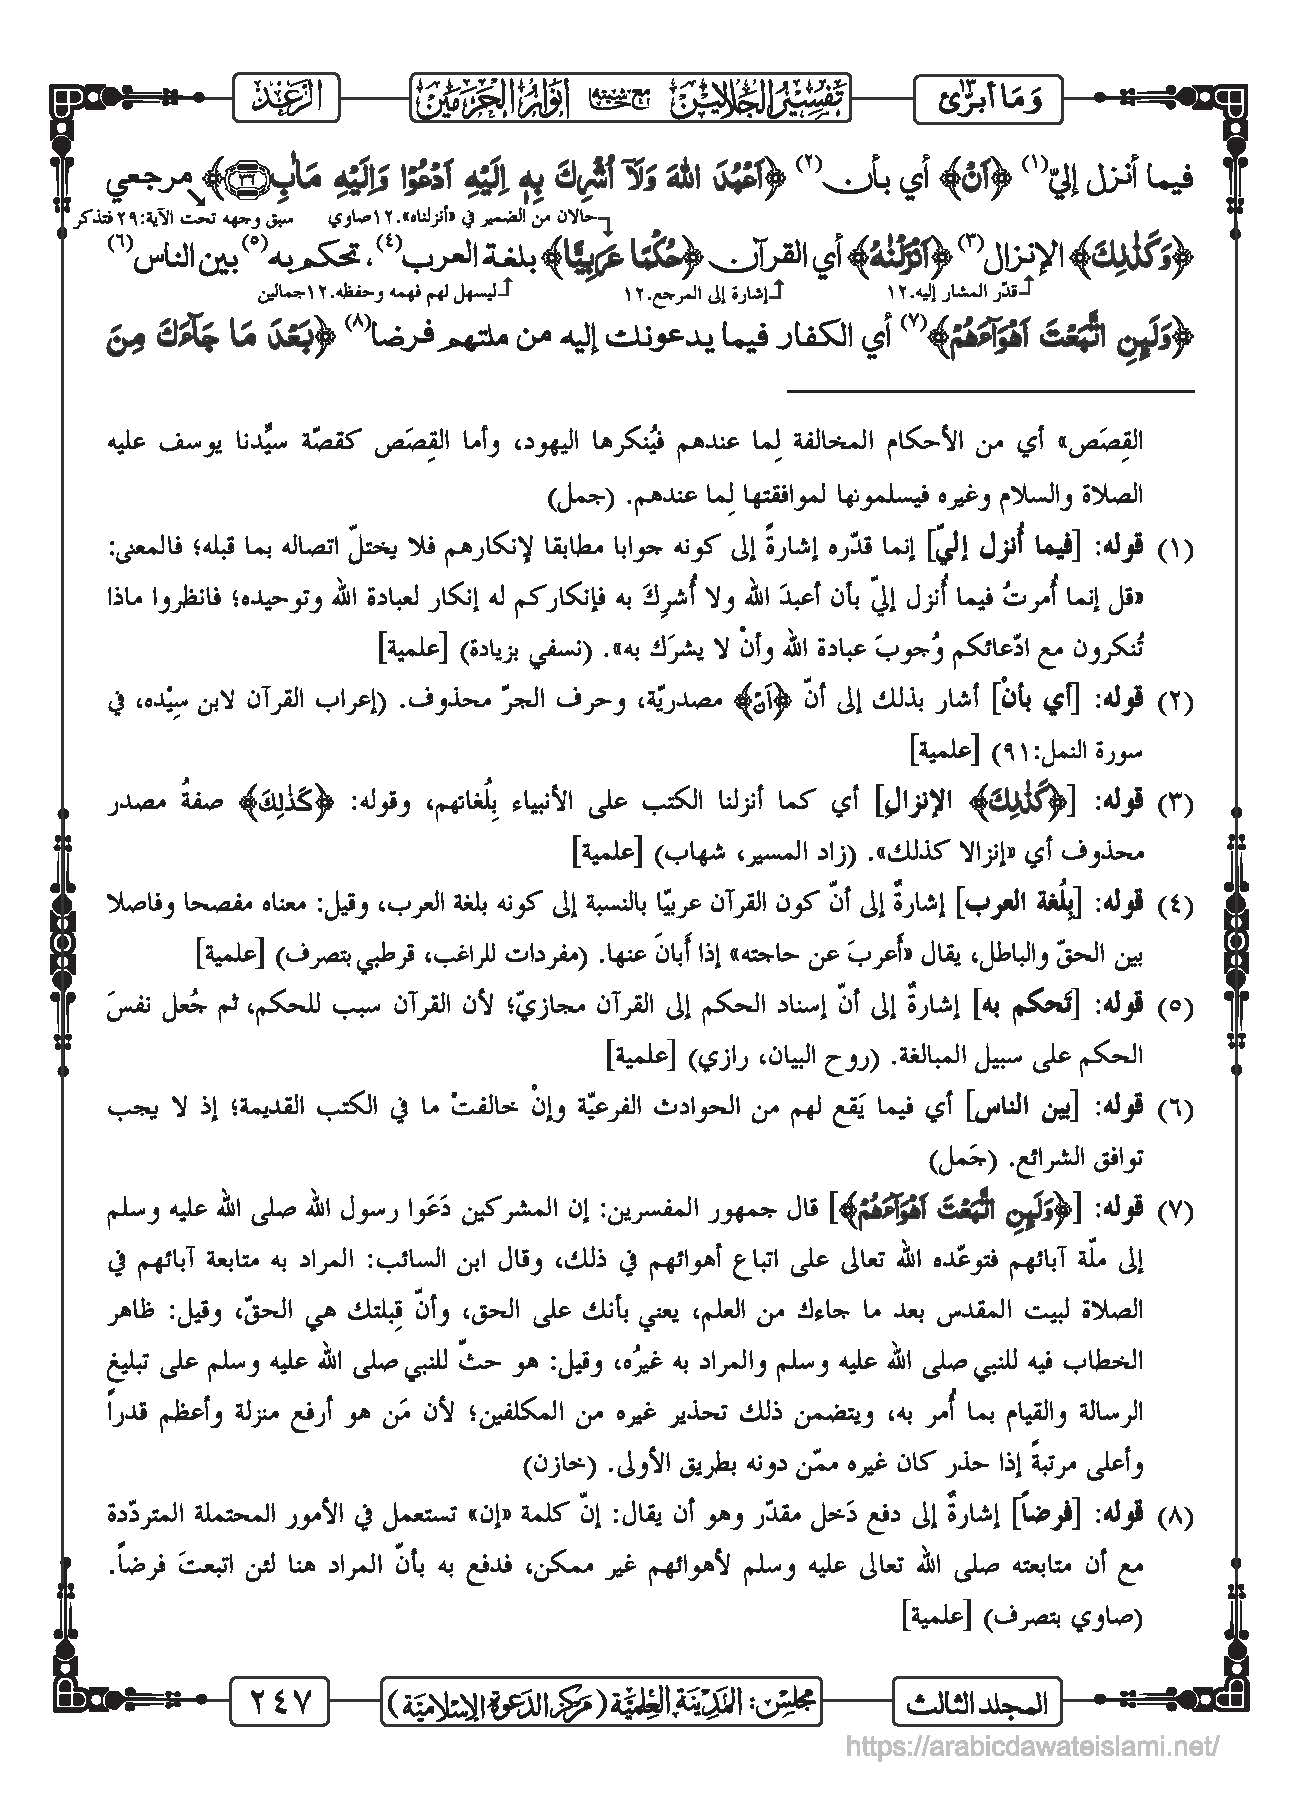 وَمَا أبرّئ ١٣
تفسير الجلالين مع حاشية أنوار الحرمين
الرّعد
فيما أنزل إليّ(١) ﴿اَنْ﴾ أي بأن(٢) ﴿اَعْبُدَ اللّٰهَ وَلَاۤ اُشْرِكَ بِهٖ اِلَيْهِ اَدْعُوْا وَاِلَيْهِ مَاٰبِ ٣٦﴾ مرجعي
حالان من الضمير في «أنزلناه».١٢صاوي
سبق وجهه تحت الآية:٢٩ فتذكر
﴿وَكَذٰلِكَ﴾ الإنزال(٣) ﴿اَنْزَلْنٰهُ﴾ أي القرآن ﴿حُكْمًا عَرَبِيًّا﴾ بلغة العرب(٤)، تحكم به(٥) بين الناس(٦)
قدّر المشار إليه.١٢
إشارة إلى المرجع.١٢
ليسهل لهم فهمه وحفظه.١٢جمالين
﴿وَلَىِٕنِ اتَّبَعْتَ اَهْوَآءَهُمْ﴾(٧) أي الكفار فيما يدعونك إليه من ملتهم فرضا(٨) ﴿بَعْدَ مَا جَآءَكَ مِنَ
القِصَص» أي من الأحكام المخالفة لِما عندهم فيُنكرها اليهود، وأما القِصَص كقصّة سيّدنا يوسف عليه
الصلاة والسلام وغيره فيسلمونها لموافقتها لِما عندهم. (جمل)
(١) قوله: [فيما أُنزل إليّ] إنما قدّره إشارةً إلى كونه جوابا مطابقا لإنكارهم فلا يختلّ اتصاله بما قبله؛ فالمعنى:
«قل إنما أُمرتُ فيما أُنزل إليّ بأن أعبدَ الله ولا أُشرِكَ به فإنكاركم له إنكار لعبادة الله وتوحيده؛ فانظروا ماذا
تُنكرون مع ادّعائكم وُجوبَ عبادة الله وأنْ لا يشرَك به». (نسفي بزيادة) [علمية]
(٢) قوله: [أي بأنْ] أشار بذلك إلى أنّ ﴿اَنْ﴾ مصدريّة، وحرف الجرّ محذوف. (إعراب القرآن لابن سِيْده، في
سورة النمل:٩١) [علمية]
(٣) قوله: [﴿كَذٰلِكَ﴾ الإنزالِ] أي كما أنزلنا الكتب على الأنبياء بِلُغاتهم، وقوله: ﴿كَذٰلِكَ﴾ صفةُ مصدر
محذوف أي «إنزالا كذلك». (زاد المسير، شهاب) [علمية]
(٤) قوله: [بِلُغة العرب] إشارةٌ إلى أنّ كون القرآن عربيّا بالنسبة إلى كونه بلغة العرب، وقيل: معناه مفصحا وفاصلا
بين الحقّ والباطل، يقال «أَعربَ عن حاجته» إذا أبانَ عنها. (مفردات للراغب، قرطبي بتصرف) [علمية]
(٥) قوله: [تَحكم به] إشارةٌ إلى أنّ إسناد الحكم إلى القرآن مجازيّ؛ لأن القرآن سبب للحكم، ثم جُعل نفسَ
الحكم على سبيل المبالغة. (روح البيان، رازي) [علمية]
(٦) قوله: [بين الناس] أي فيما يَقع لهم من الحوادث الفرعيّة وإنْ خالفتْ ما في الكتب القديمة؛ إذ لا يجب
توافق الشرائع. (جَمل)
(٧) قوله: [﴿وَلَىِٕنِ اتَّبَعْتَ اَهْوَآءَهُمْ﴾] قال جمهور المفسرين: إن المشركين دَعَوا رسول الله صلى الله عليه وسلم
إلى ملّة آبائهم فتوعّده الله تعالى على اتباع أهوائهم في ذلك، وقال ابن السائب: المراد به متابعة آبائهم في
الصلاة لبيت المقدس بعد ما جاءك من العلم، يعني بأنك على الحق، وأنّ قِبلتك هي الحقّ، وقيل: ظاهر
الخطاب فيه للنبي صلى الله عليه وسلم والمراد به غيرُه، وقيل: هو حثّ للنبي صلى الله عليه وسلم على تبليغ
الرسالة والقيام بما أُمر به، ويتضمن ذلك تحذير غيره من المكلفين؛ لأن مَن هو أرفع منزلة وأعظم قدراً
وأعلى مرتبةً إذا حذر كان غيره ممّن دونه بطريق الأولى. (خازن)
(٨) قوله: [فرضاً] إشارةٌ إلى دفع دَخل مقدّر وهو أن يقال: إنّ كلمة «إن» تستعمل في الأمور المحتملة المتردّدة
مع أن متابعته صلى الله تعالى عليه وسلم لأهوائهم غير ممكن، فدفع به بأنّ المراد هنا لئن اتبعتَ فرضاً.
(صاوي بتصرف) [علمية]
المجلد الثالث
مجلس: المدينة العلمية (مركز الدعوة الإسلامية)
٢٤٧
https://arabicdawateislami.net/